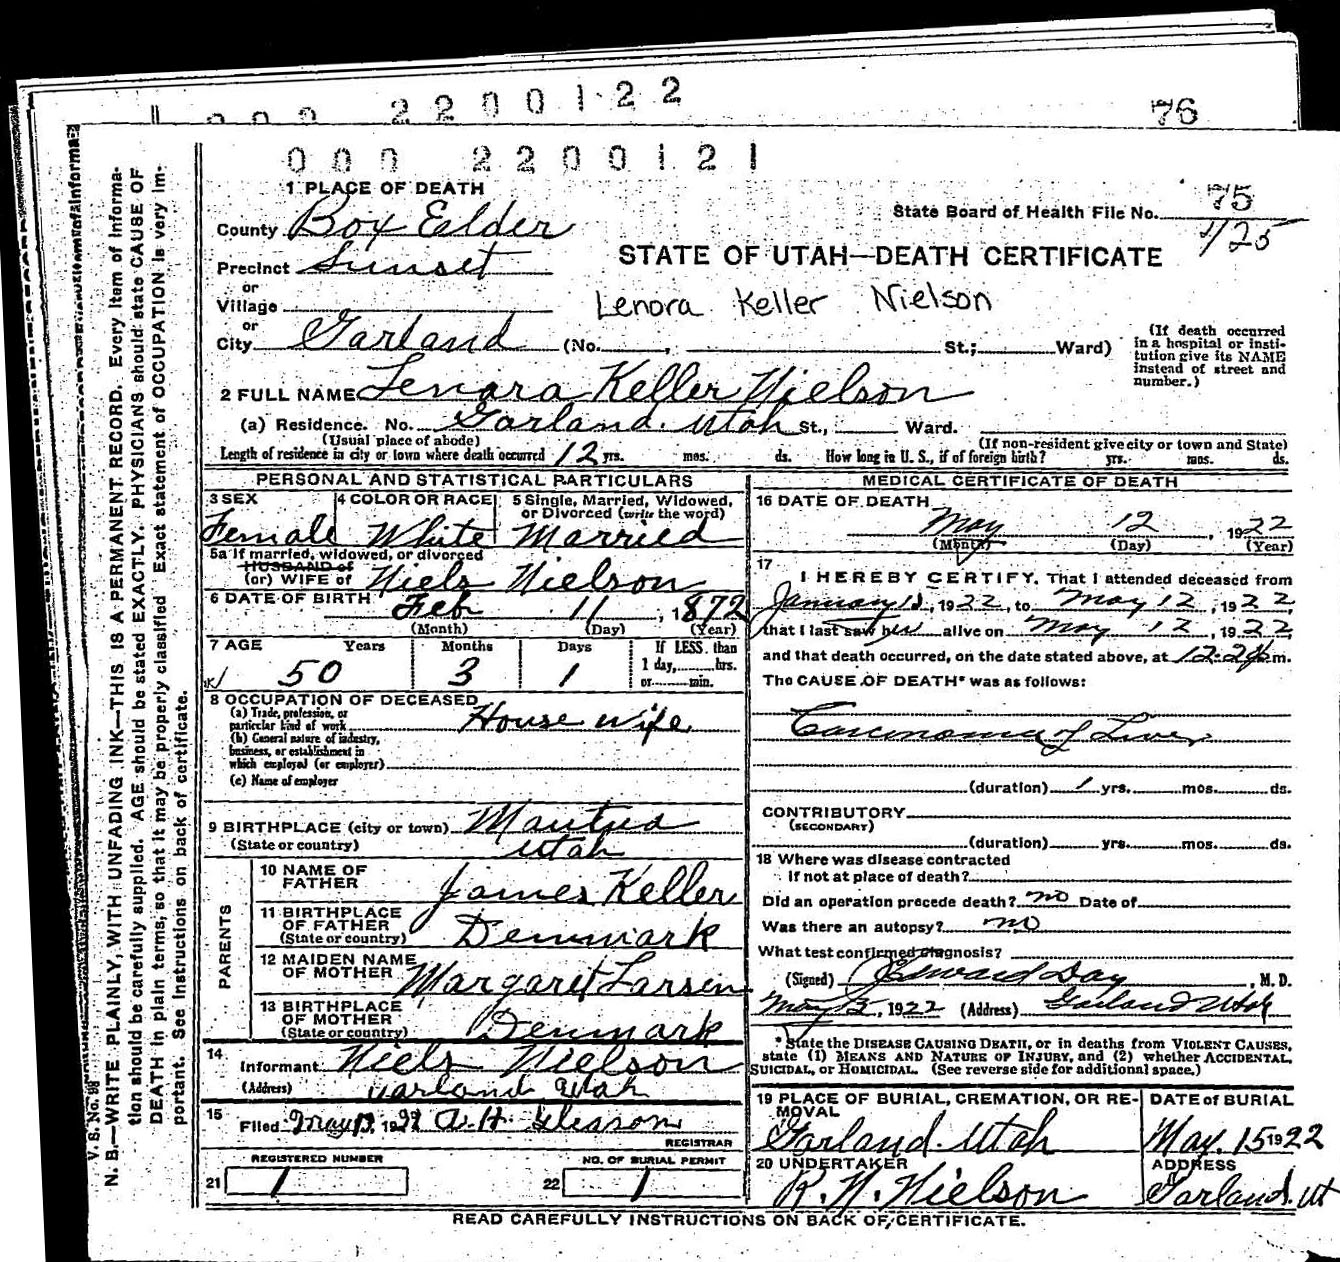 000 2200122
76
000 2200121
75
State Board of Health File No.
125
1 PLACE OF DEATH
County Box Elder
STATE OF UTAH—DEATH CERTIFICATE
Precinct Sunset
or
Village
Lenora Keller Nielson
or
City Garland (No. , St.; Ward)
(If death occurred in a hospital or institution give its NAME instead of street and number.)
2 FULL NAME Lenora Keller Nielson
(a) Residence. No. Garland. Utah St., Ward.
(Usual place of abode) (If non-resident give city or town and State)
Length of residence in city or town where death occurred 12 yrs. mos. ds. How long in U. S., if of foreign birth? yrs. mos. ds.
PERSONAL AND STATISTICAL PARTICULARS
3 SEX 4 COLOR OR RACE 5 Single, Married, Widowed, or Divorced (write the word)
Female White Married
5a If married, widowed, or divorced
HUSBAND of
(or) WIFE of Niels Nielson
6 DATE OF BIRTH Feb 11, 1872
(Month) (Day) (Year)
7 AGE Years Months Days If LESS than
1 day, hrs.
or min.
50 3 1
8 OCCUPATION OF DECEASED
(a) Trade, profession, or
particular kind of work House wife
(b) General nature of industry,
business, or establishment in
which employed (or employer)
(c) Name of employer
9 BIRTHPLACE (city or town) Mantua
(State or country) Utah
PARENTS
10 NAME OF FATHER James Keller
11 BIRTHPLACE OF FATHER
(State or country) Denmark
12 MAIDEN NAME OF MOTHER Margaret Larsen
13 BIRTHPLACE OF MOTHER
(State or country) Denmark
14
Informant Niels Nielson
(Address) Garland Utah
15
Filed May 13, 1922 A. H. Gleason
REGISTRAR
REGISTERED NUMBER NO. OF BURIAL PERMIT
21 1 22 1
MEDICAL CERTIFICATE OF DEATH
16 DATE OF DEATH
May 12, 1922
(Month) (Day) (Year)
17
I HEREBY CERTIFY, That I attended deceased from
January 1, 1922, to May 12, 1922,
that I last saw her alive on May 12, 1922,
and that death occurred, on the date stated above, at 12.20 m.
The CAUSE OF DEATH* was as follows:
Carcinoma of Liver
(duration) 1 yrs. mos. ds.
CONTRIBUTORY
(SECONDARY)
(duration) yrs. mos. ds.
18 Where was disease contracted
if not at place of death?
Did an operation precede death? no Date of
Was there an autopsy? no
What test confirmed diagnosis?
(Signed) Edward Day, M. D.
May 13, 1922 (Address) Garland Utah
* State the DISEASE CAUSING DEATH, or in deaths from VIOLENT CAUSES,
state (1) MEANS AND NATURE OF INJURY, and (2) whether ACCIDENTAL,
SUICIDAL, or HOMICIDAL. (See reverse side for additional space.)
19 PLACE OF BURIAL, CREMATION, OR REMOVAL DATE of BURIAL
Garland. Utah May. 15 1922
20 UNDERTAKER ADDRESS
R. N. Nielson Garland. Ut
READ CAREFULLY INSTRUCTIONS ON BACK OF CERTIFICATE.
V. S. No. 98
N. B.—WRITE PLAINLY, WITH UNFADING INK—THIS IS A PERMANENT RECORD. Every Item of Informa-
tion should be carefully supplied. AGE should be stated EXACTLY. PHYSICIANS should state CAUSE OF
DEATH in plain terms, so that it may be properly classified. Exact statement of OCCUPATION is very im-
portant. See Instructions on back of certificate.